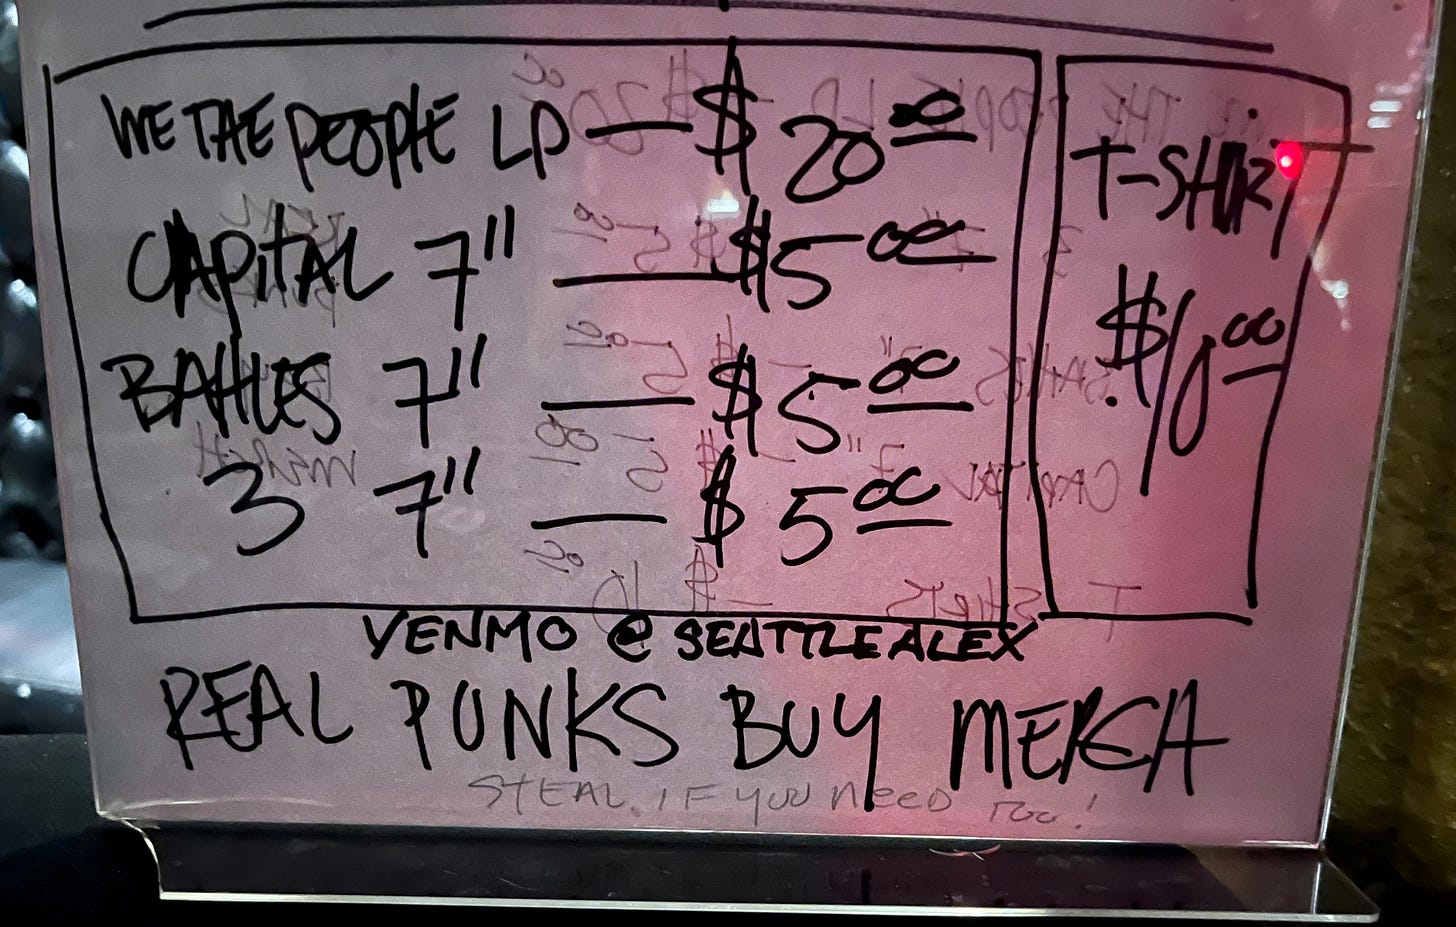 WE THE PEOPLE LP — $20.00
CAPITAL 7" — $5.00
BATTLES 7" — $5.00
3 7" — $5.00
T-SHIRT
$10.00
VENMO @SEATTLEALEX
REAL PUNKS BUY MERCH
STEAL. IF YOU NEED TOO!